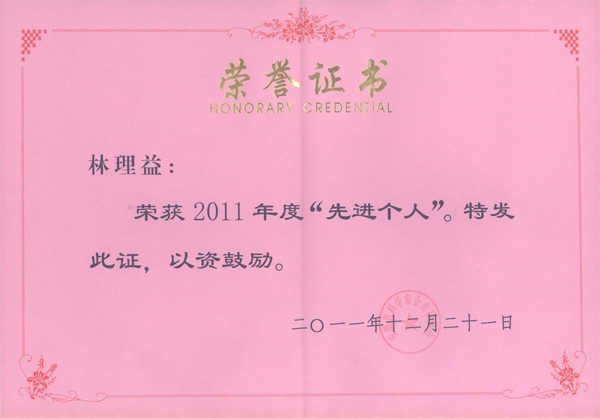 荣誉证书
HONORARY CREDENTIAL
林理益：
荣获 2011 年度“先进个人”。特发
此证，以资鼓励。
二〇一一年十二月二十一日